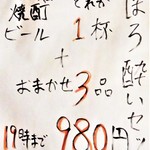 ほろ酔いセッ
焼酎
ビール
どれか
1杯
+
おまかせ3品
19時まで980円